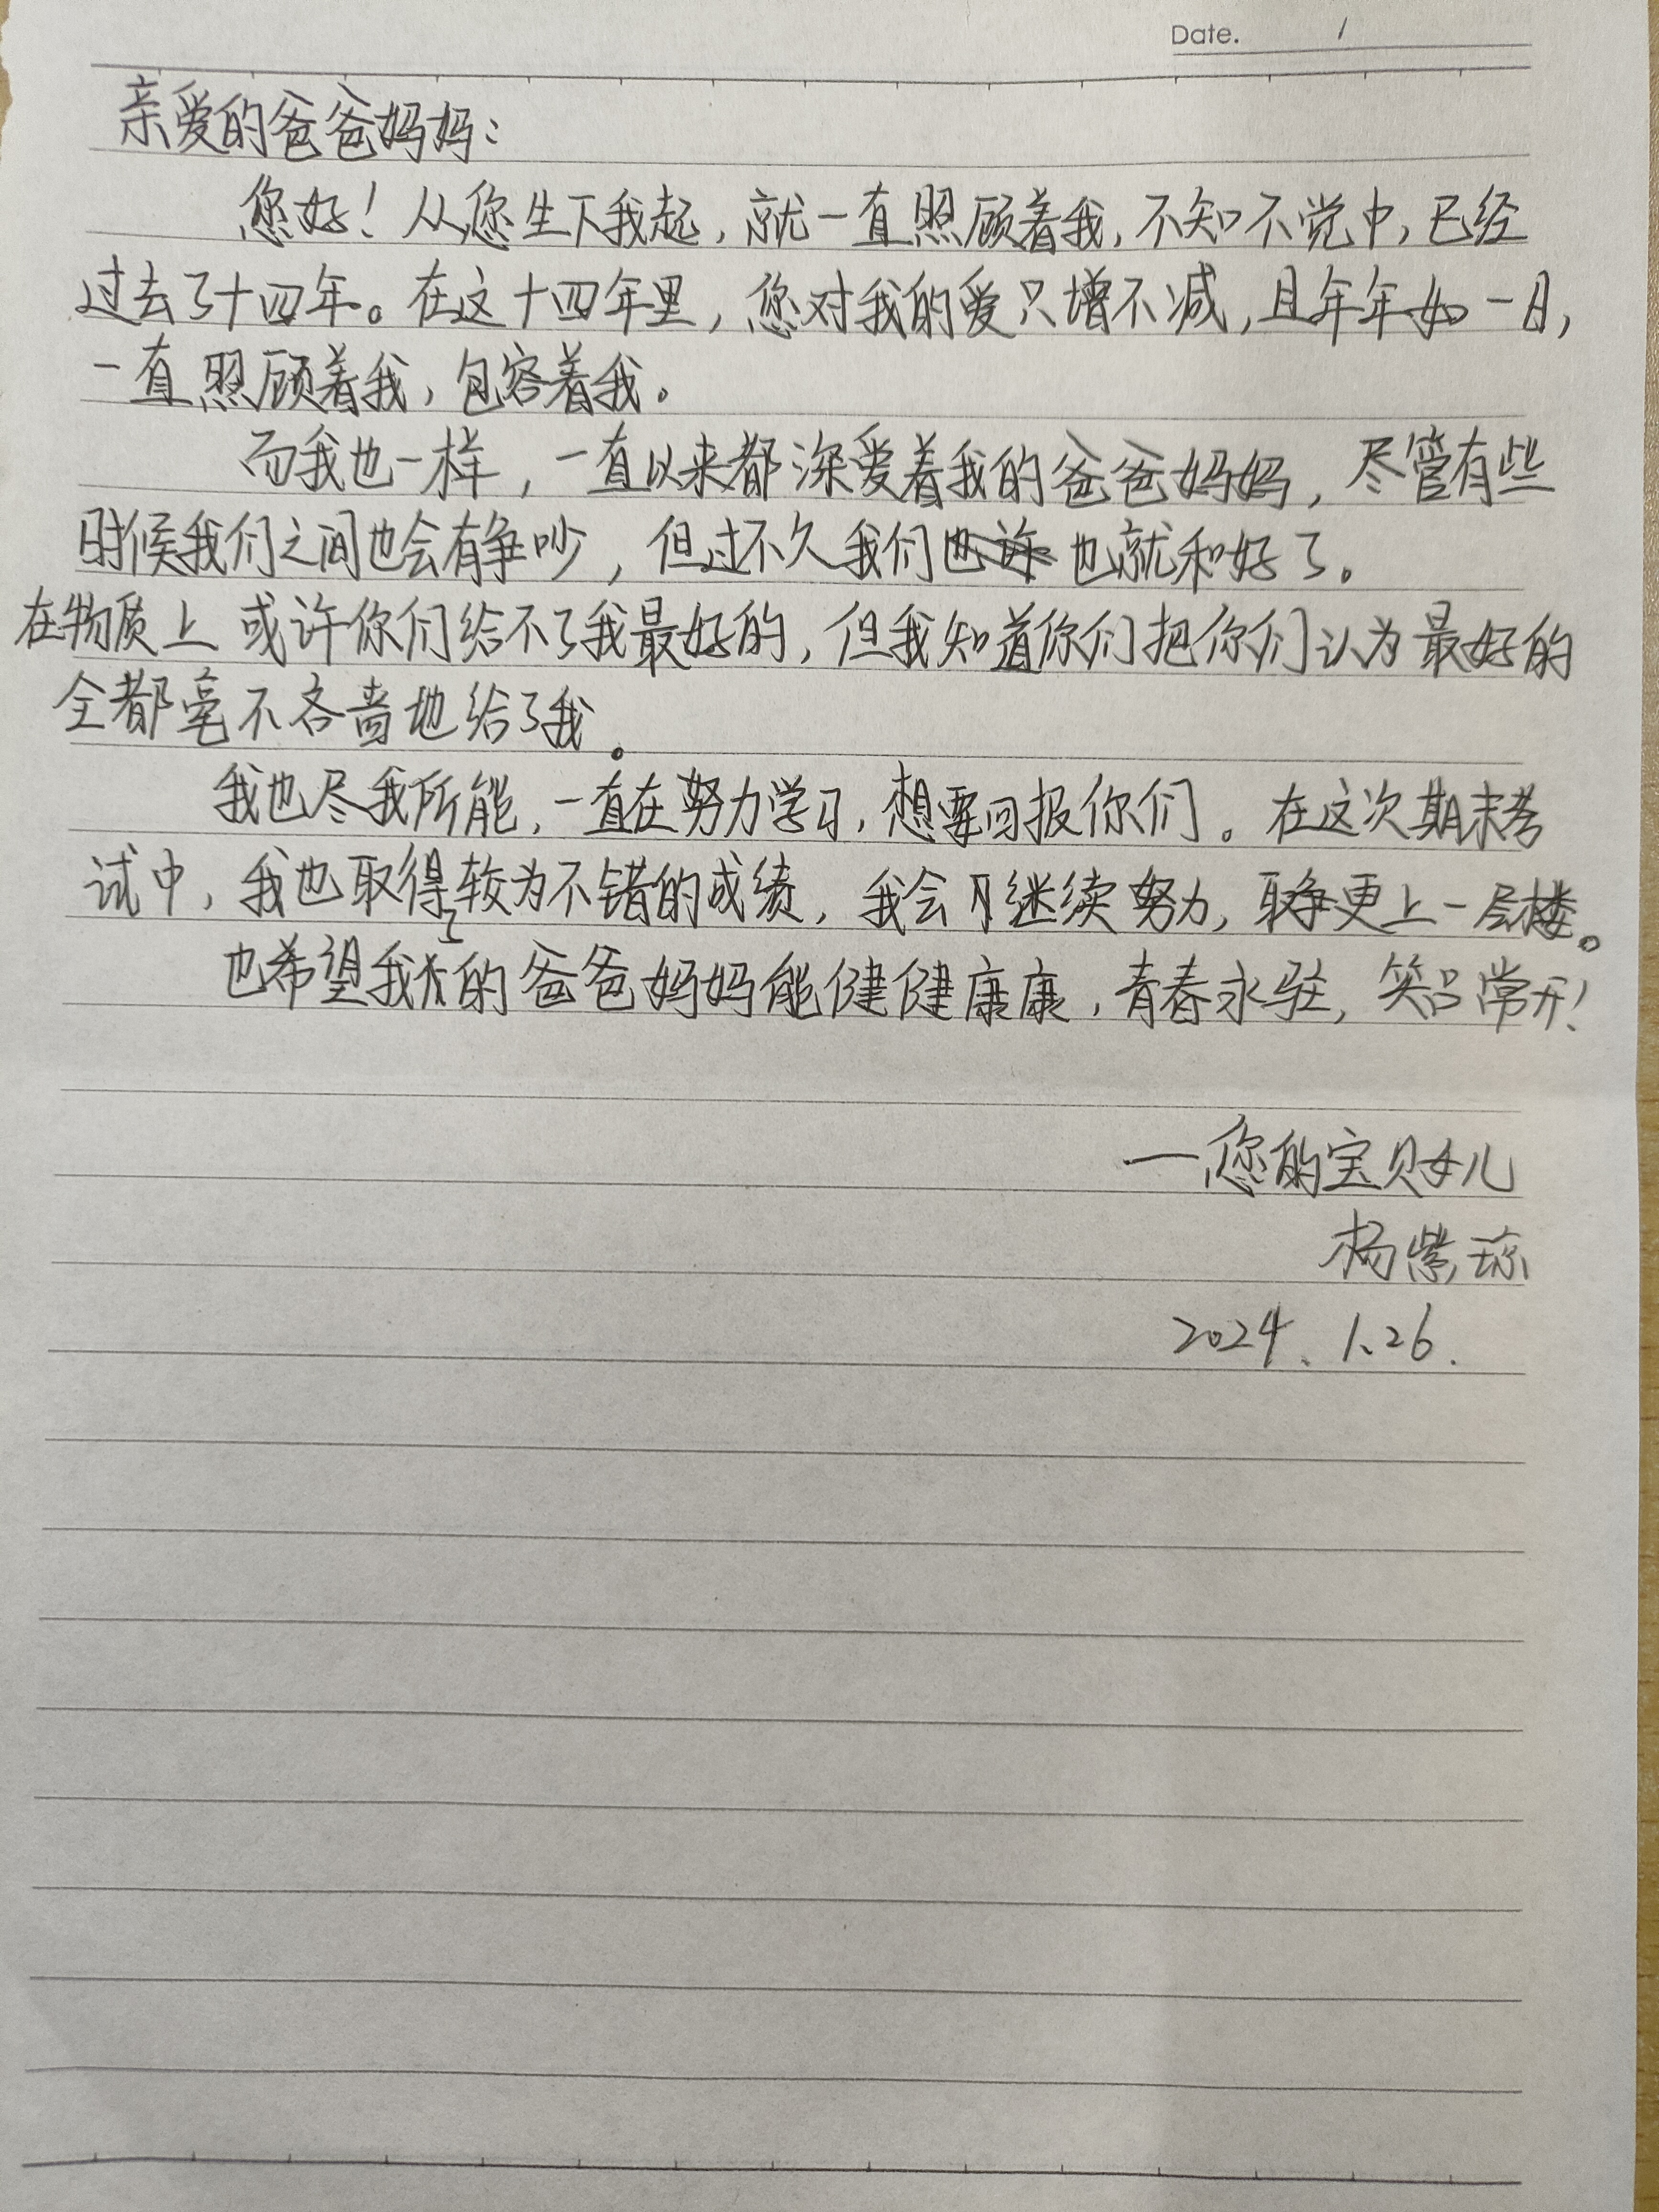 Date. /
亲爱的爸爸妈妈：
您好！从您生下我起，就一直照顾着我，不知不觉中，已经
过去了十四年。在这十四年里，您对我的爱只增不减，且年年如一日，
一直照顾着我，包容着我。
而我也一样，一直以来都深爱着我的爸爸妈妈，尽管有些
时候我们之间也会有争吵，但过不久我们也就和好了。
在物质上或许你们给不了我最好的，但我知道你们把你们认为最好的
全都毫不吝啬地给了我。
我也尽我所能，一直在努力学习，想要回报你们。在这次期末考
试中，我也取得了较为不错的成绩，我会继续努力，争更上一层楼。
也希望我的爸爸妈妈能健健康康，青春永驻，笑口常开！
—您的宝贝女儿
杨紫琼
2024.1.26.